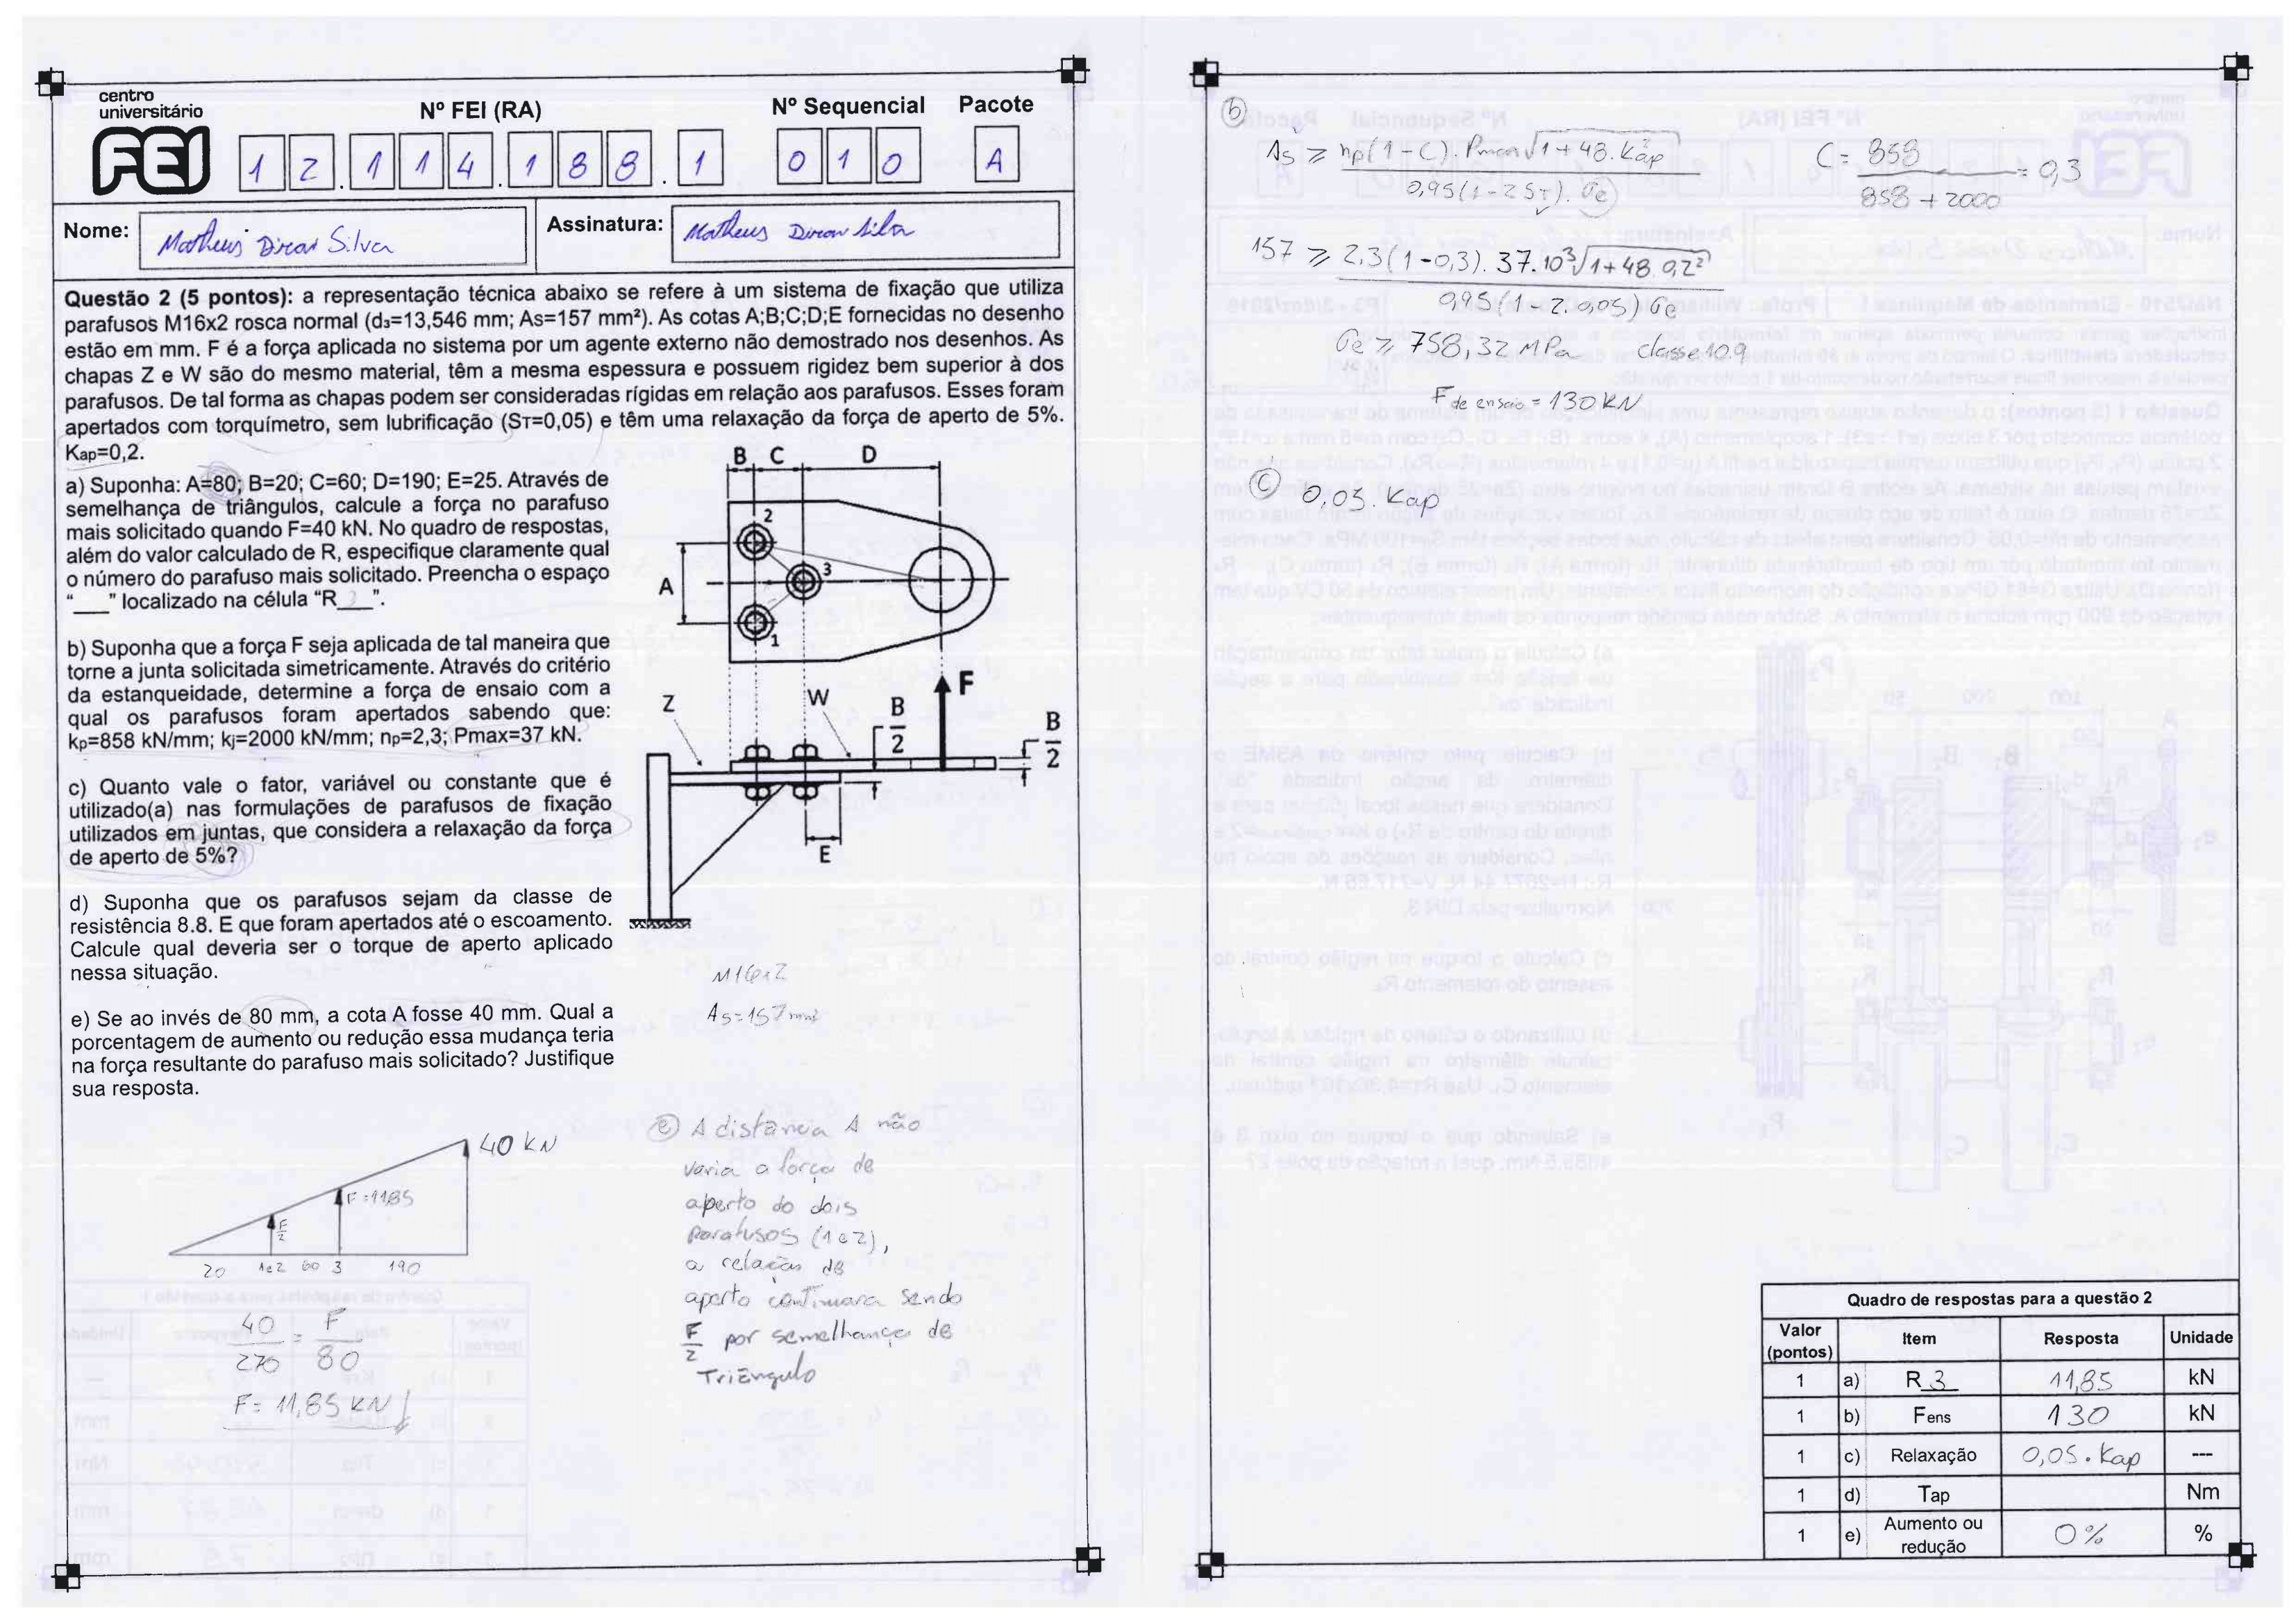 centro
universitário
FEI
Nº FEI (RA)
Nº Sequencial
Pacote
1 2 . 1 1 4 . 1 8 8 . 1
0 1 0
A
Nome:
Assinatura:
Questão 2 (5 pontos): a representação técnica abaixo se refere à um sistema de fixação que utiliza
parafusos M16x2 rosca normal (d₃=13,546 mm; As=157 mm²). As cotas A;B;C;D;E fornecidas no desenho
estão em mm. F é a força aplicada no sistema por um agente externo não demostrado nos desenhos. As
chapas Z e W são do mesmo material, têm a mesma espessura e possuem rigidez bem superior à dos
parafusos. De tal forma as chapas podem ser consideradas rígidas em relação aos parafusos. Esses foram
apertados com torquímetro, sem lubrificação (Sᴛ=0,05) e têm uma relaxação da força de aperto de 5%.
Kap=0,2.
a) Suponha: A=80; B=20; C=60; D=190; E=25. Através de
semelhança de triângulos, calcule a força no parafuso
mais solicitado quando F=40 kN. No quadro de respostas,
além do valor calculado de R, especifique claramente qual
o número do parafuso mais solicitado. Preencha o espaço
"___" localizado na célula "R 3 ___".
b) Suponha que a força F seja aplicada de tal maneira que
torne a junta solicitada simetricamente. Através do critério
da estanqueidade, determine a força de ensaio com a
qual os parafusos foram apertados sabendo que:
kp=858 kN/mm; kj=2000 kN/mm; np=2,3; Pmax=37 kN.
c) Quanto vale o fator, variável ou constante que é
utilizado(a) nas formulações de parafusos de fixação
utilizados em juntas, que considera a relaxação da força
de aperto de 5%?
d) Suponha que os parafusos sejam da classe de
resistência 8.8. E que foram apertados até o escoamento.
Calcule qual deveria ser o torque de aperto aplicado
nessa situação.
e) Se ao invés de 80 mm, a cota A fosse 40 mm. Qual a
porcentagem de aumento ou redução essa mudança teria
na força resultante do parafuso mais solicitado? Justifique
sua resposta.
B C D
2
3
A
1
F
Z
W
B/2
B/2
E
M16x2
As=157mm²
40 kN
F=11,85
F/2
20 1e2 60 3 190
40/270 = F/80
F= 11,85 kN
e) A distância A não
varia a força de
aperto do dois
parafusos (1e2),
a relação de
aperto continuara sendo
F/2 por semelhança de
Triângulo
b)
As ≥ np(1-C).Pmax√1+48.Kap² / 0,95(1-2ST).σe
C= 858 / 858+2000 = 0,3
157 ≥ 2,3(1-0,3).37.10³√1+48.0,2² / 0,95(1-2.0,05)σe
σe ≥ 758,32 MPa classe 10.9
F de ensaio = 130 kN
c) 0,05.Kap
Quadro de respostas para a questão 2
Valor (pontos) Item Resposta Unidade
1 a) R 3 11,85 kN
1 b) Fens 130 kN
1 c) Relaxação 0,05.Kap ---
1 d) Tap Nm
1 e) Aumento ou redução 0% %